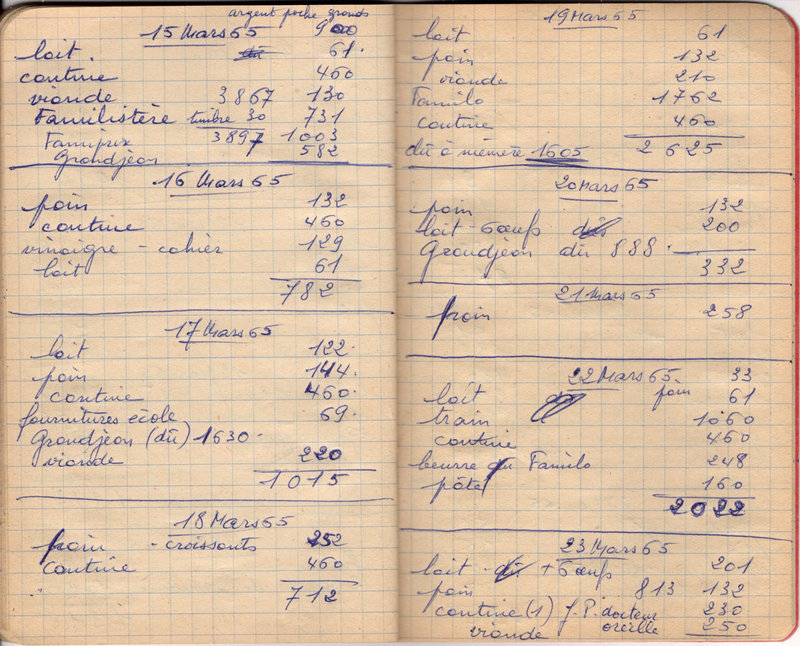 argent poche grands
15 Mars 65 900
lait. dû 61.
cantine 460
viande 3867 130
Familistère timbre 30 731
Familprix 3897 1003
Grandjean 582
16 Mars 65
pain 132
cantine 460
vinaigre - cahier 129
lait 61
782
17 Mars 65
lait 122.
pain 144.
cantine 460.
fournitures école 69.
Grandjean (dû) 1630.
viande 220
1015
18 Mars 65
pain - croissants 252
cantine 460
712
19 Mars 65
lait 61
pain 132
viande 210
Familo 1762
cantine 460
dû à mémère 1605 2625
20 Mars 65
pain 132
lait - 6 œufs dû 200
Grandjean dû 888.
332
21 Mars 65
pain 258
22 Mars 65 33
lait pain 61
train 1060
cantine 460
beurre du Familo 248
pâte 160
2022
23 Mars 65
lait - dû + 6 œufs 201
pain 813 132
cantine (1) J.P. docteur 230
viande oreille 250